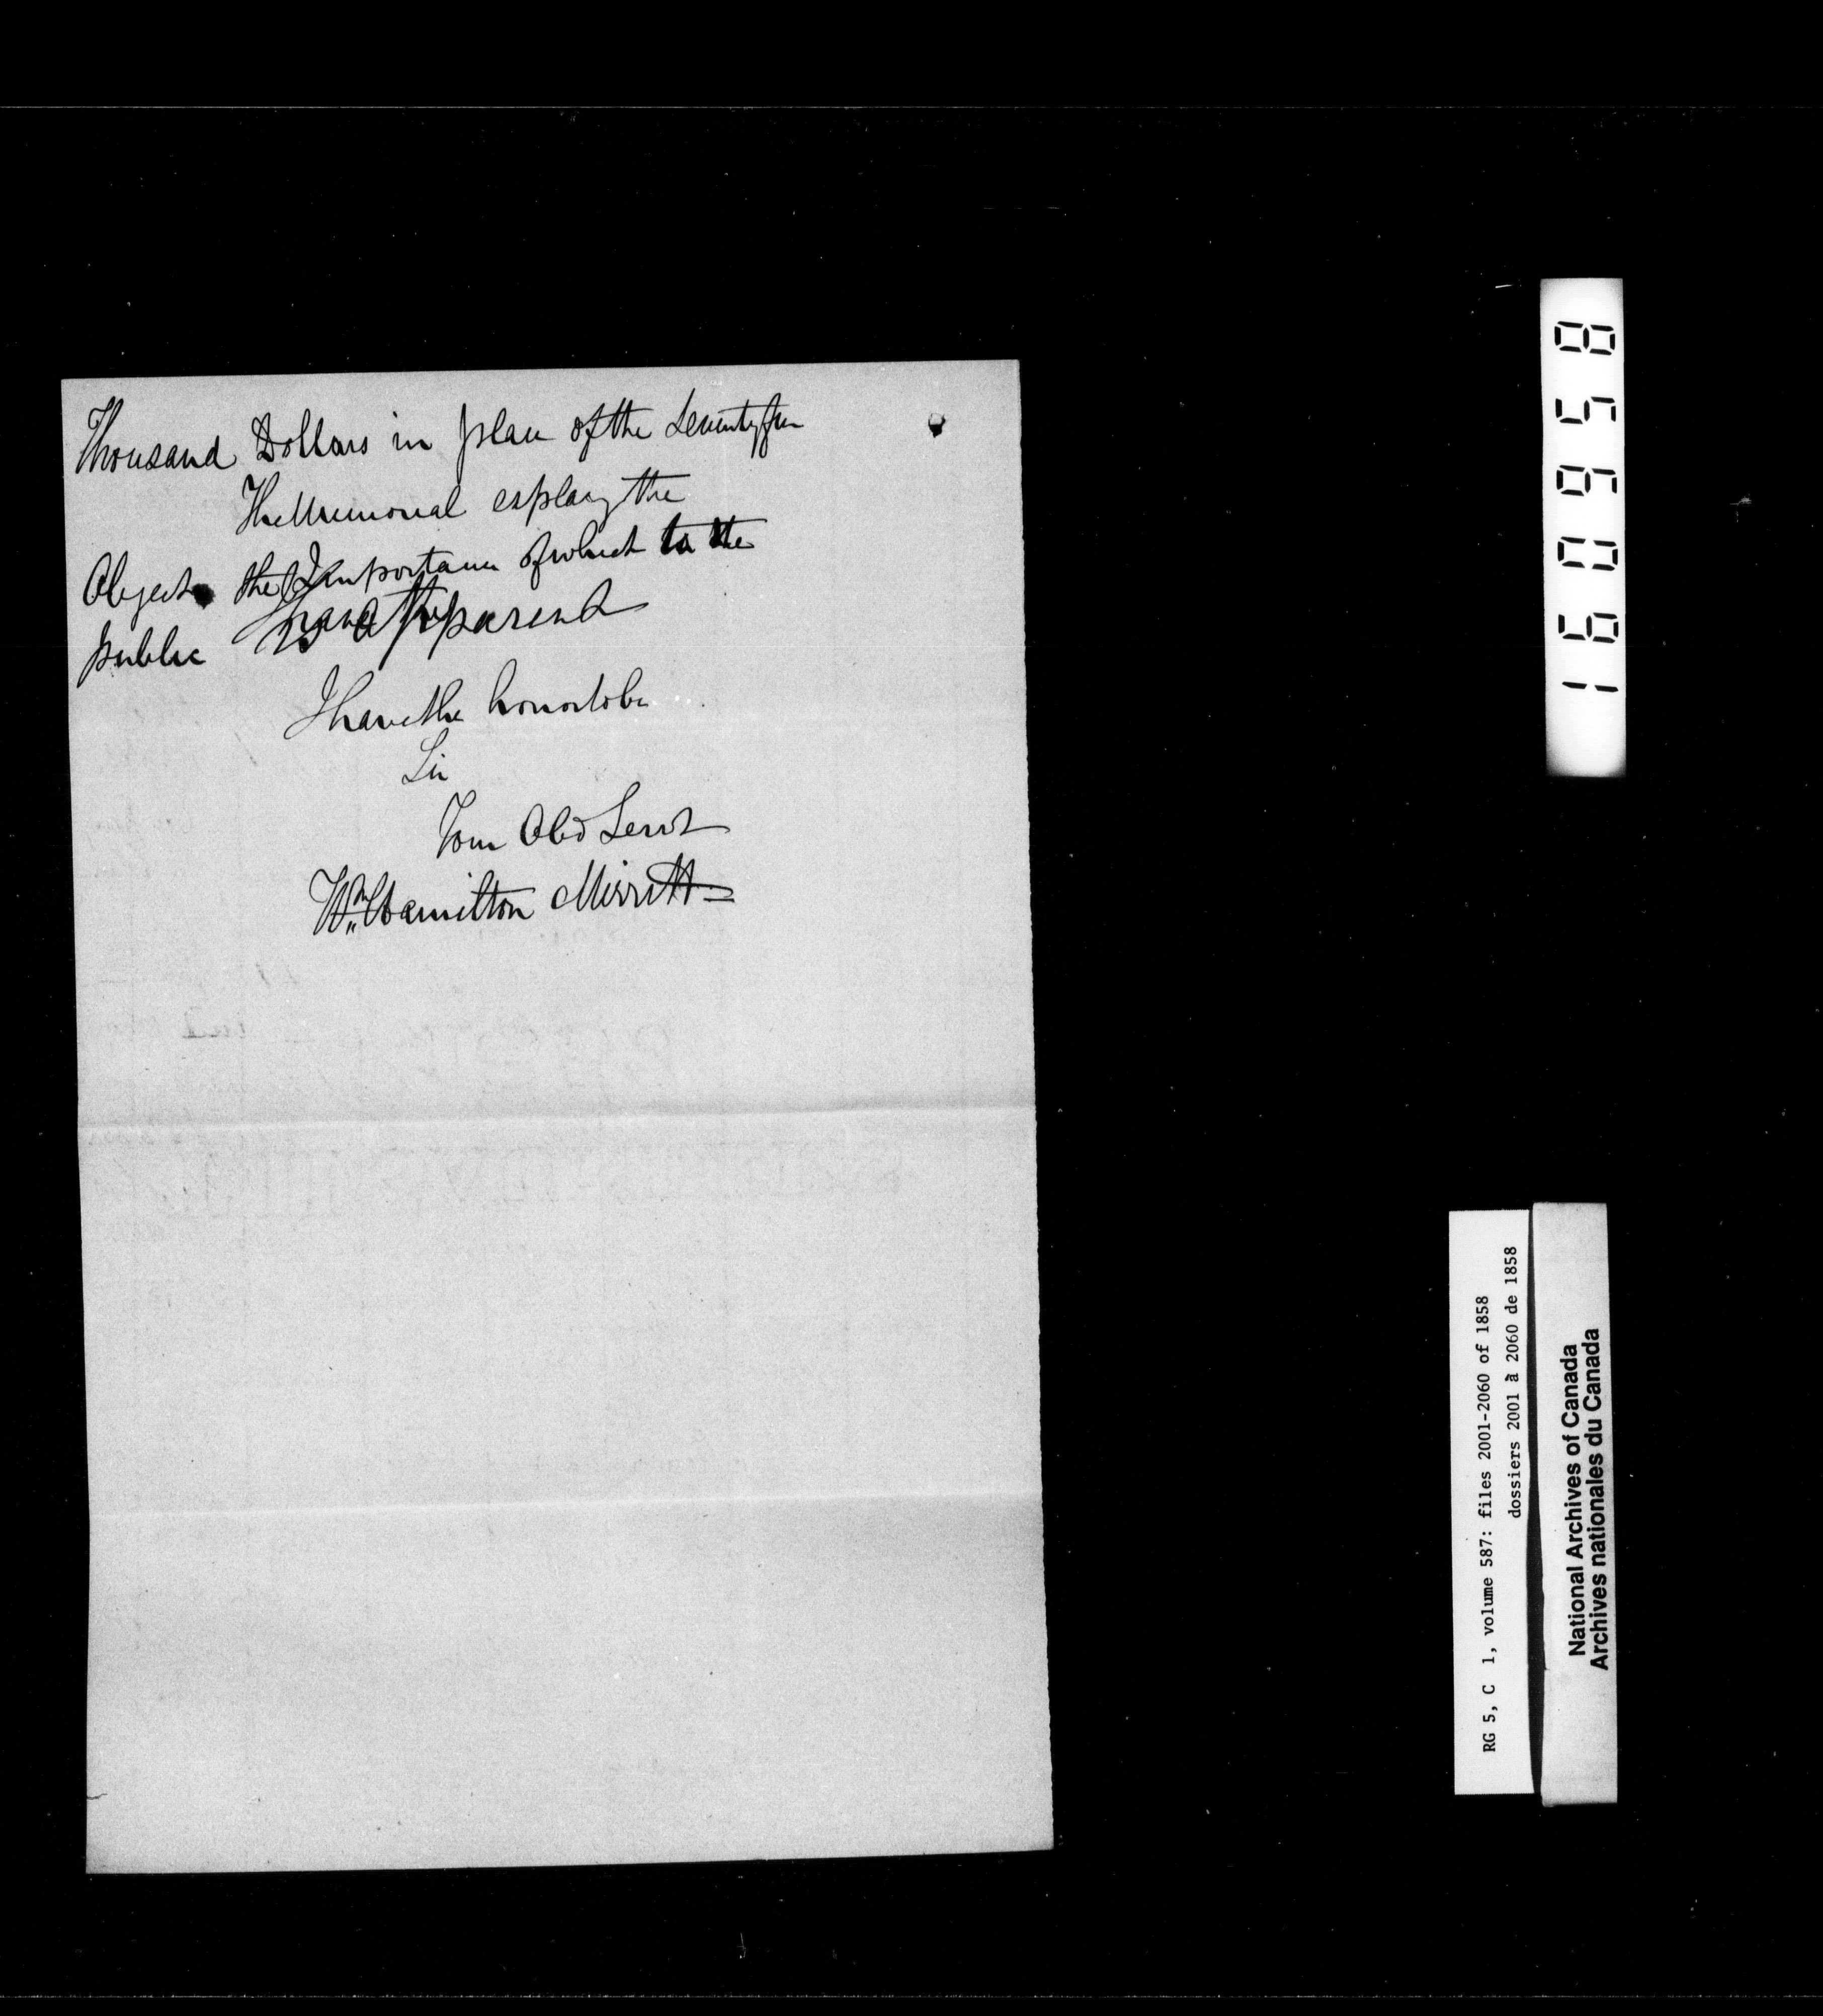 Thousand Dollars in place of the Seventy five
The Memorial explains the
Object the Importance of which to the
public is apparent
I have the honor to be
Sir
Your Obd Servt
Wm Hamilton Merritt
160958
RG 5, C 1, volume 587: files 2001-2060 of 1858
dossiers 2001 à 2060 de 1858
National Archives of Canada
Archives nationales du Canada